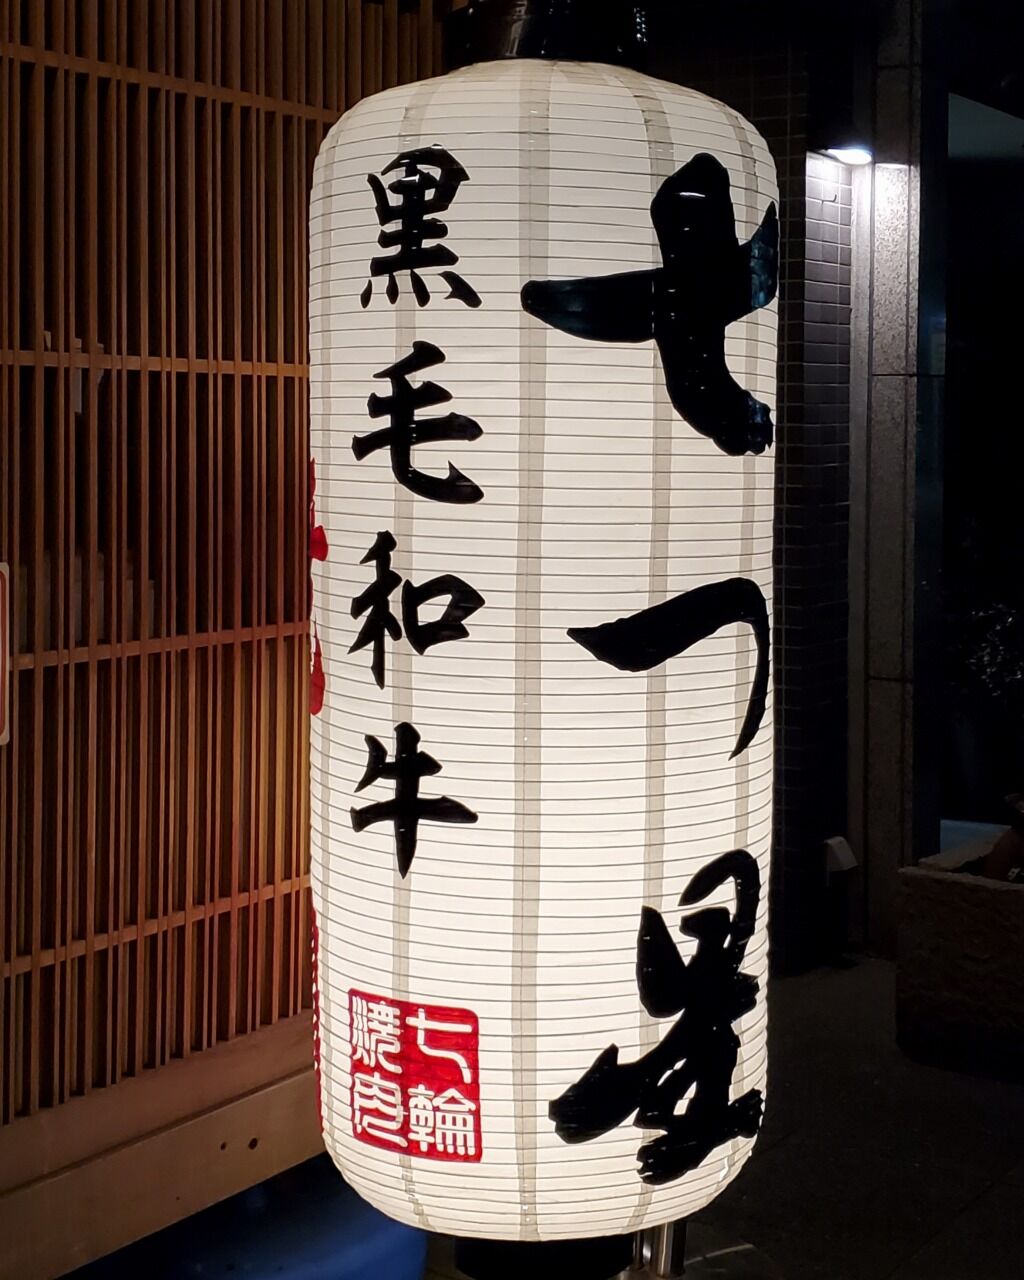 七つ星
黒毛和牛
七輪
焼肉